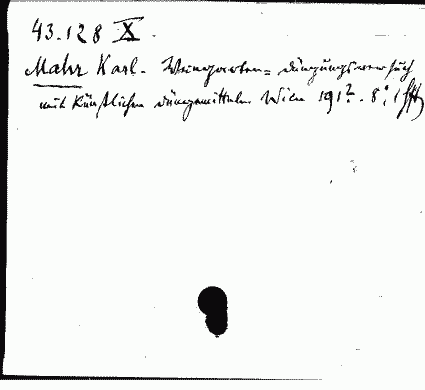 43.128 X.
Mahr Karl. Weingarten= düngungsversuch
mit künstlichen düngemitteln. Wien 191?. 8°.